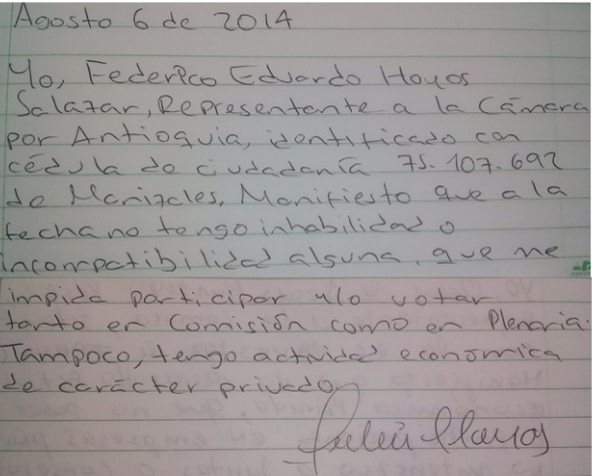 Agosto 6 de 2014
Yo, Federico Eduardo Hoyos
Salazar, Representante a la Cámara
por Antioquia, identificado con
cédula de ciudadanía 75.107.692
de Manizales, Manifiesto que a la
fecha no tengo inhabilidad o
incompatibilidad alguna, que me
impida participar y/o votar
tanto en Comisión como en Plenaria.
Tampoco, tengo actividad económica
de carácter privado.